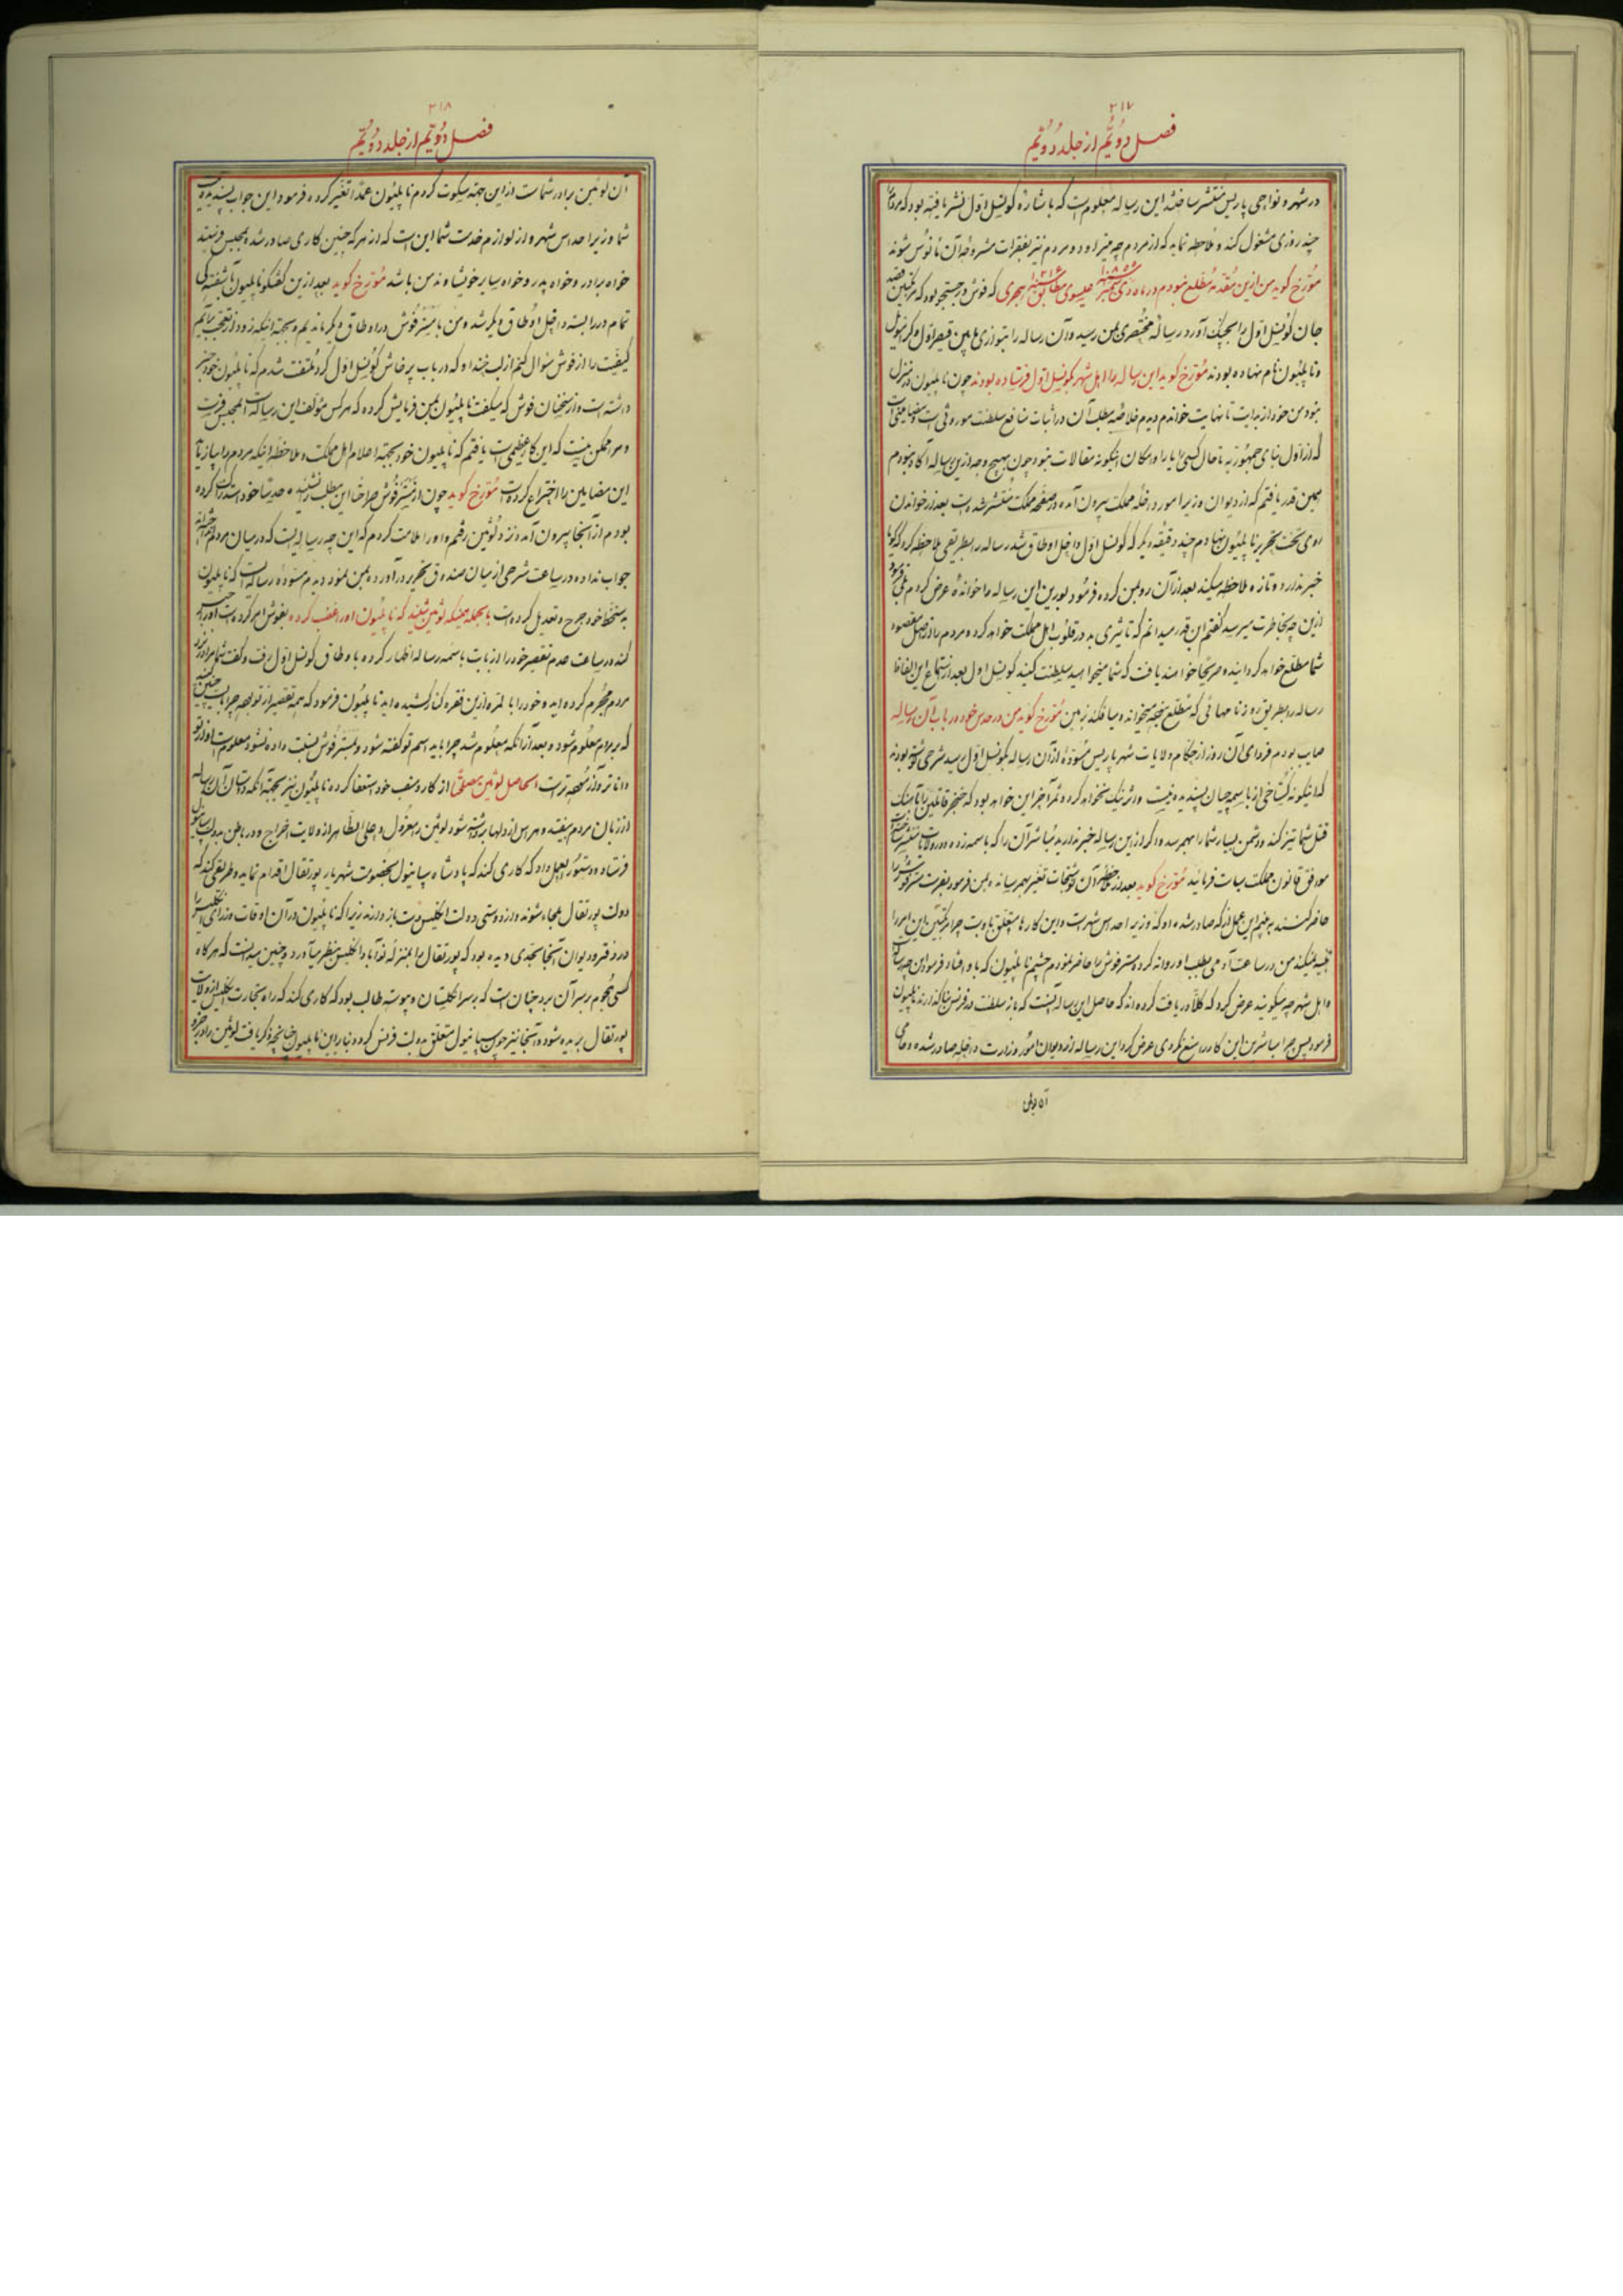 ۲۱۷
فصل دوّیّم از جلد دوّیّم
در شهر و نواحی پاریس منتشر ساختند این رساله معلوم است که باشاره کونسل اوّل نشر یافته بود که مردم را
چند روزی مشغول کند و ملاحظه نماید که از مردم چه خیزد و مردم نیز بفقرات مشروحه آن مأنوس شوند
مورّخ گوید من از این مقدّمه مطّلع نبودم در ماه دی سمبر سنه ۱۸۰۰ عیسوی مطابق سنه ۱۲۱۵ هجری که فوش در جستجو بود که مرتکبین قصد
جان کونسل اوّل را بچنگ آورد رساله مختصری بمن رسید و آن رساله را بتوازی مابین قیصر اوّل و کرنویل
و ناپلیون نام نهاده بودند مورّخ گوید این رساله را اهل شهر بکونسل اوّل فرستاده بودند چون ناپلیون در منزل
نبود من خود از بدایت تا نهایت خواندم دیدم خلاصه مطلب آن در اثبات منافع سلطنت موروثی است و مضامینی است
که از اوّل بنای جمهوریّه تا حال کسی را یارا و امکان اینگونه مقالات نبود چون بهیچ وجه از این رساله آگاه نبودم
همین قدر یافتم که از دیوان وزیر امور داخله مملکت بیرون آمده در صفحه مملکت منتشر شده است بعد از خواندن
روی تخت تحریر ناپلیون نهادم چند دقیقه دیگر که کونسل اوّل داخل اوطاق شد رساله را بطریقی ملاحظه کرد که گویا
خبر ندارد و تازه ملاحظه میکند بعد از آن رو بمن کرده فرمود بورین این رساله را خوانده عرض کردم بلی فرمود
از این چه بخاطرت میرسد گفتم این قدر میدانم که تأثیری بد در قلوب اهل مملکت خواهد کرد و مردم را از اصل مقصود
شما مطلع خواهد گردانید و صریحا خواهند یافت که شما میخواهید سلطنت کنید کونسل اول بعد از استماع این الفاظ
رساله را بطریق روزنامهائی که مطلع نیمه میخواند و میافکند بزمین مورّخ گوید من در حدس خود در باب آن رساله
صایب بودم فردای آن روز از حکام ولایات شهر پاریس مسوّده از آن رساله بکونسل اوّل رسید شرحی نوشته بودند
که اینگونه گستاخی از باسمه‌چیان پسندیده نیست و اثر نیک نخواهد کرد و ثمر آخر این خواهد بود که خنجر قاتلین را بآهنگ
قتل شما تیز کند و دشمن بسیار شما را بهم رسد و اگر از این رساله خبر ندارید مباشر آن را که باسمه زده و در ولایات منتشر ساخته
موافق قانون مملکت سیاست فرمائید مورّخ گوید بعد از ملاحظه آن نوشتجات تغیّر بهم رسانده بمن فرمود بفرست مستر فوش را
حاضر کنند ببینم این عمل از که صادر شده او که وزیر احداس شهر است و این کارها متعلّق باوست چرا مرتکبین این امر را
تنبیه نمیکند من در ساعت آدمی بطلب او روانه کرده مستر فوش را حاضر نمودم چشم ناپلیون که باو افتاد فرمود این چه رساله است
و اهل شهر چه میگویند عرض کرد که کلّاً دریافت کرده‌اند که حاصل این رساله آنست که باز سلطنت در فرنس بنا گذارند ناپلیون
فرمود پس چرا مباشرین این کار را منع نکردی عرض کرد این رساله از دیوان امور وزارت داخله صادر شده و حامی
آن لوئین
۲۱۸
فصل دوّیّم از جلد دوّیّم
آن لوئین برادر شماست از این جهته سکوت کردم ناپلیون عمداً تغیّر کرده فرمود این جواب پسندیده نیست
شما وزیر احداس شهر و از لوازم خدمت شما این است که از هر که چنین کاری صادر شده بمجلس فرستید
خواه برادر و خواه پدر و خواه سایر خویشاوند من باشد مورّخ گوید بعد از این گفتگو ناپلیون بآشفته‌گی
تمام در را بسته داخل اوطاق دیگر شد و من با مستر فوش در اوطاق دیگر ماندیم و بجهته اینکه زود از تعجّب برآیم
کیفیّت را از فوش سؤال کنم از لبخند او که در باب پرخاش کونسل اوّل کرد ملتفت شدم که ناپلیون خود خبر
داشته است و از سخنان فوش که میگفت ناپلیون بمن فرمایش کرده که هر کس مؤلف این رساله است بمجلس فرست
و مرا ممکن نیست که این کار عظیمی است یافتم که ناپلیون خود بجهته اعلام اهل مملکت و ملاحظه اینکه مردم را بیازماید
این مضامین را اختراع کرده است مورّخ گوید چون از مستر فوش صراحتاً این مطلب را نشنیده و حدیثا خود استدراک کرده
بودم از آنجا بیرون آمده نزد لوئین رفتم و او را ملامت کردم که این چه رساله ایست که در میان مردم انداخته
جواب نداده در ساعت شرحی از میان صندوق تحریر درآورده بمن نمود دیدم مسوّده رساله است که ناپلیون
بدستخط خود جرح و تعدیل کرده است بالجمله همینکه لوئین شنید که ناپلیون او را غضب کرده بفوش امر کرده است او را حبس
کند در ساعت عدم تقصیر خود را از بابت باسمه رساله اظهار کرده باوطاق کونسل اوّل رفت و گفت شما مرا در نزد
مردم مجرم کرده‌اید و خود را بالمره از این فقره کنار کشیده‌اید ناپلیون فرمود که همه تقصیر از تو بوده چرا بایست چنین کنی
که بر مردم معلوم شود و بعد از آنکه معلوم شد چرا باید اسم تو گفته شود و بمستر فوش نسبت داده نشود معلوم است او از تو
داناتر و آزموده‌تر است الحاصل لوئین مصلحتاً از کار و منصب خود استعفا کرده ناپلیون نیز بجهته آنکه داستان آن رساله
از زبان مردم بیفتد و هراس از دلها برداشته شود لوئین را معزول و علی الظاهر از ولایت اخراج و در باطن بدولت سپانیول
فرستاد و دستورالعمل داد که کاری کند که پادشاه سپانیول بخصومت شهریار پورتقال اقدام نماید و طریقی کند که
دولت پورتقال ملجاء شوند و از دوستی دولت انگلیس دست باز دارند زیرا که ناپلیون در آن اوقات وزرای انگلیس را
در دفتر و دیوان آنجا بحدی دیده بود که پورتقال را بمنزله نوآباد انگلیس بنظر میآورد و چنین میدانست که هرگاه
کسی هجوم بر سر آن برد چنان است که بر سر انگلستان و پیوسته طالب بود که کاری کند که راه تجارت انگلیس از ولایت
پورتقال بریده شود و آنجا نیز چون سپانیول متعلق بدولت فرنس گردد بنابراین ناپلیون چنانچه ذکر یافت لوئین برادر خود